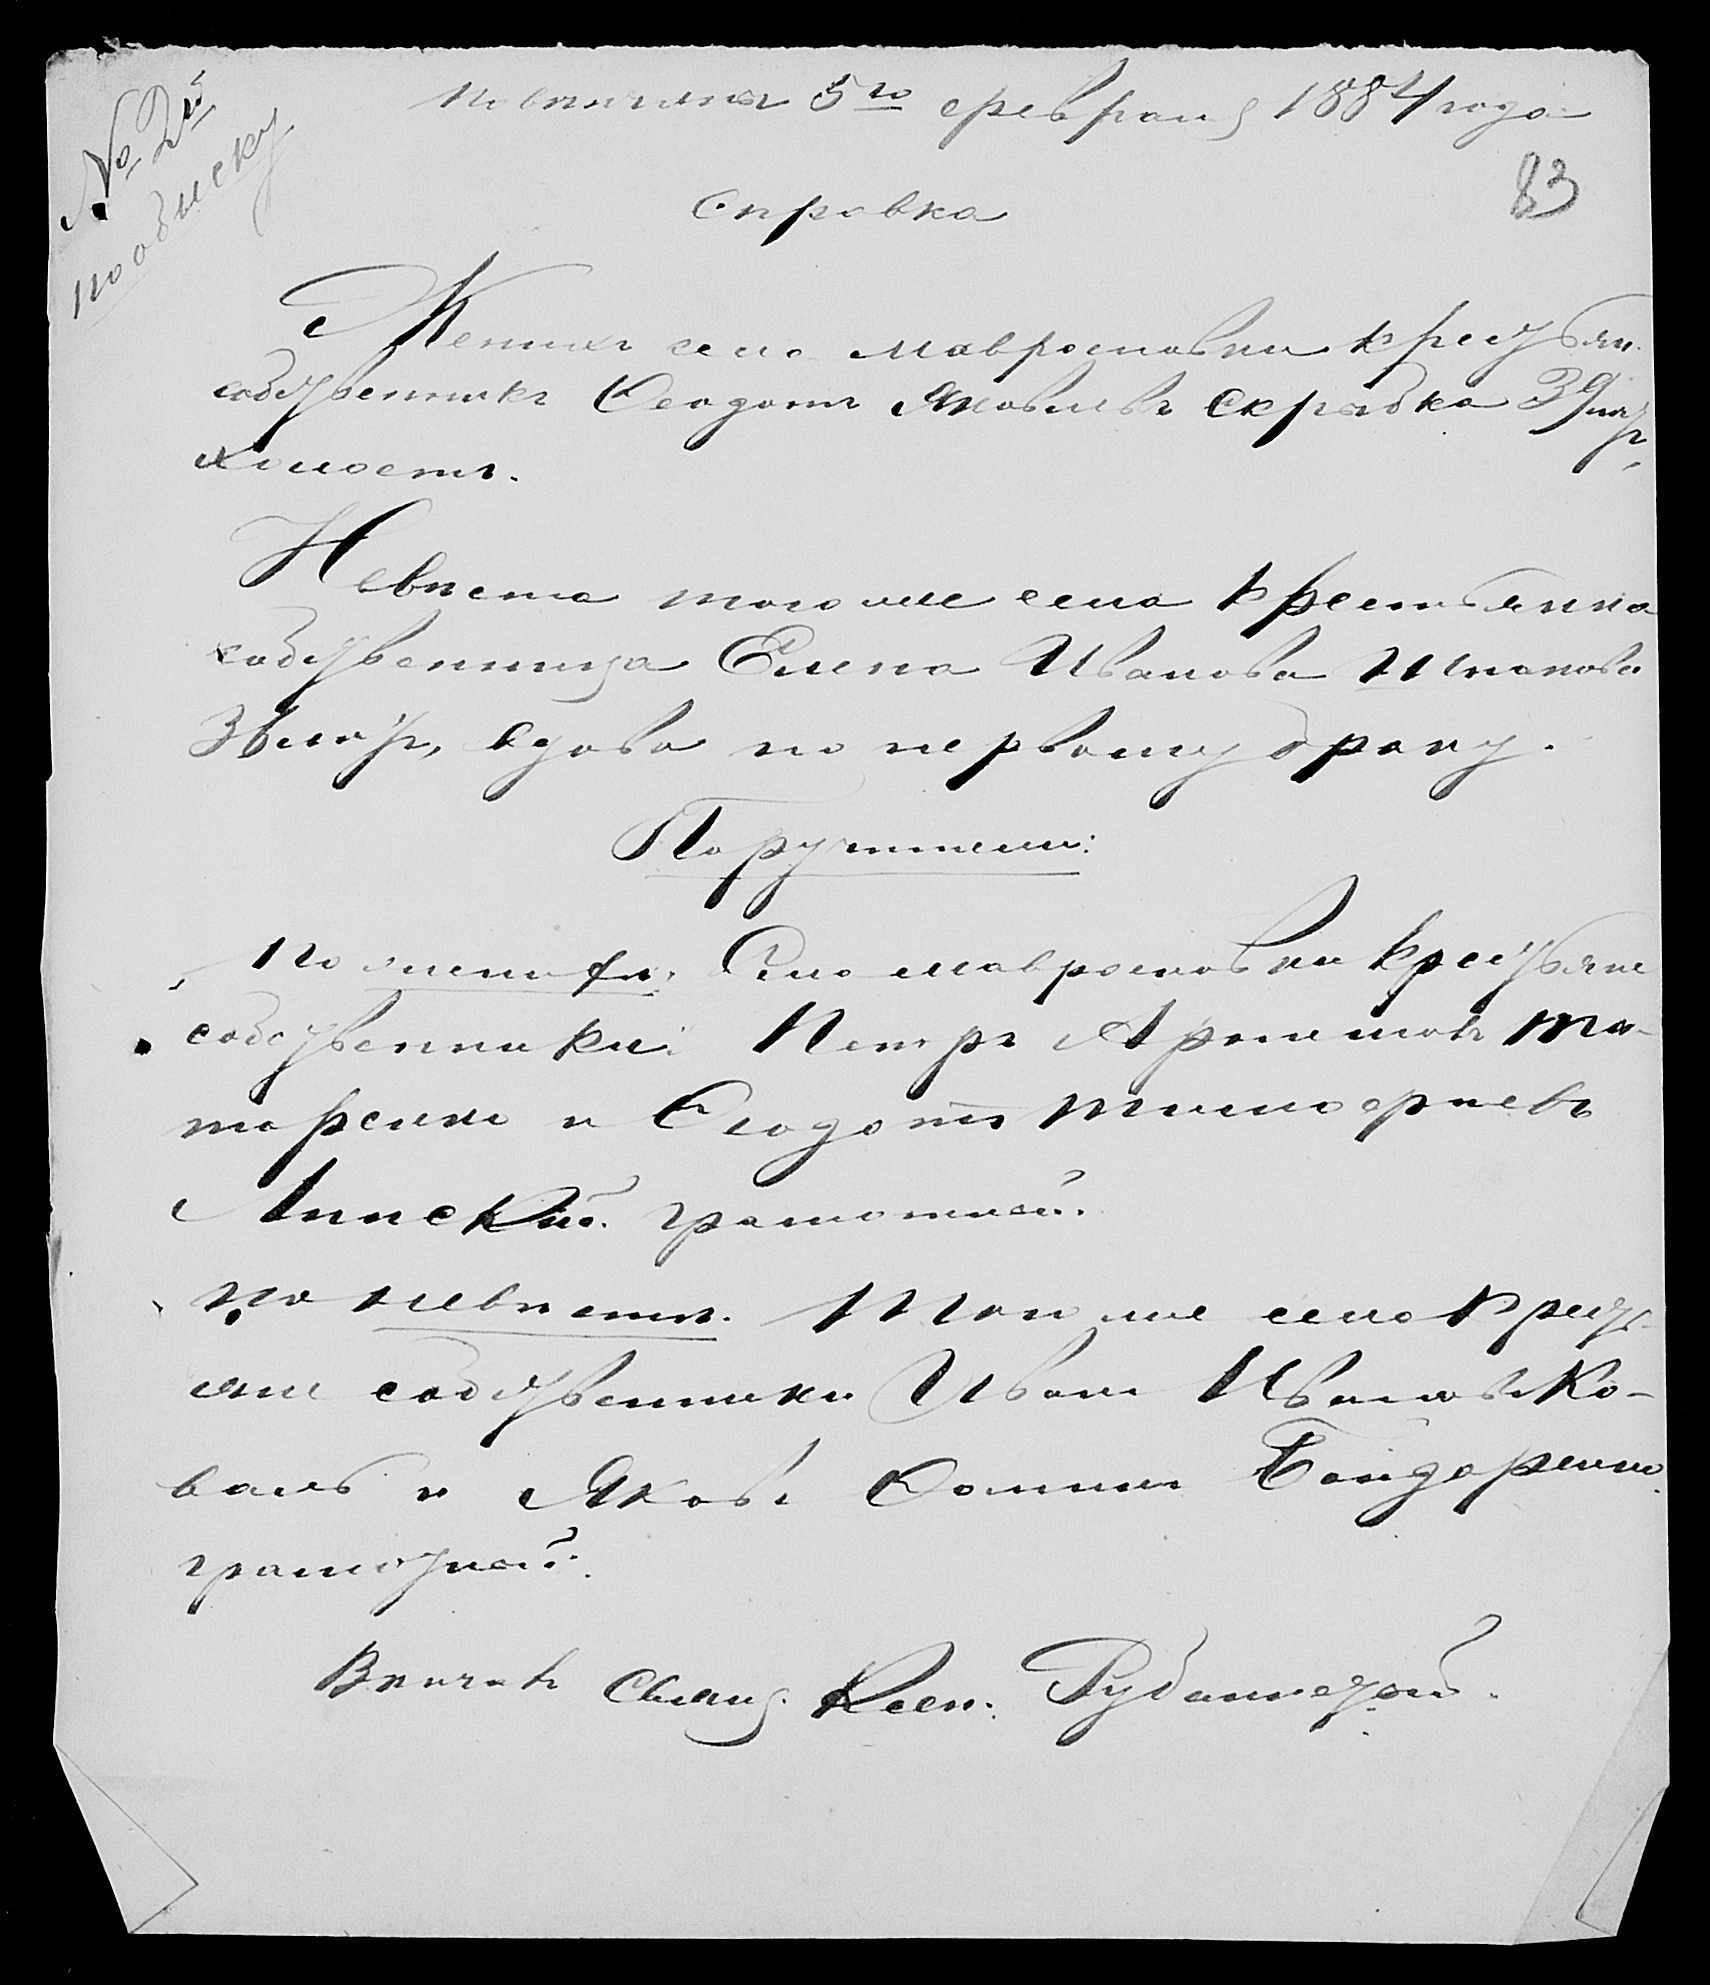 № 2й
по обыску
повѣнчаны 5го февраля 1884 года
83
Справка
Женихъ села Маврополья крестьян.
собственникъ Феодотъ Яковлевъ Скрыбка 39 лѣтъ
холостъ.
Невѣста того же села крестьянка
собственница Елена Иванова
36 лѣтъ, вдова по первому браку.
Поручители:
по женихѣ: Села крестьяне
собственники: Петръ Артемовъ Та-
таренко и Феодотъ Тимофѣевъ
Липскій. грамотный.
по невѣстѣ. Того же села крест-
яне собственники Иванъ Ивановъ Ко-
валь и Яковъ Фоминъ Бондаренко
грамотный.
Вѣнчалъ Священ. Ксен. Рубановскій.